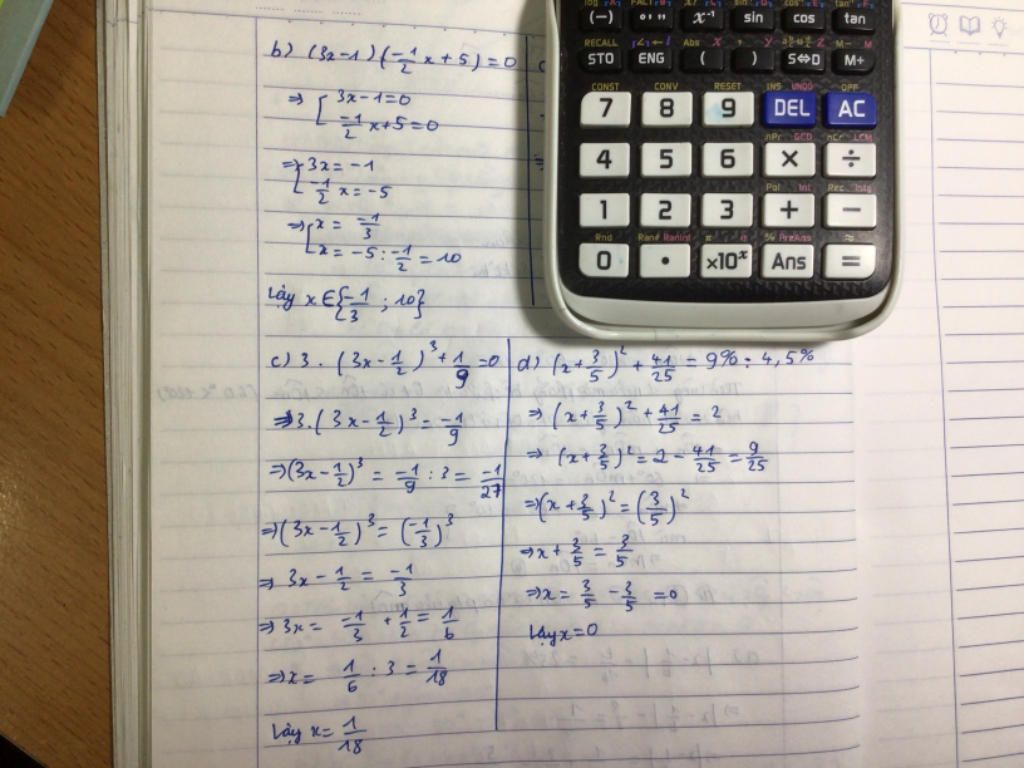 b) (3x-1)(-1/2 x+5)=0
⇒ [ 3x-1=0
-1/2 x+5=0
⇒ [ 3x=-1
-1/2 x=-5
⇒ [ x= -1/3
x=-5:-1/2=10
Vậy x∈{-1/3;10}
c) 3.(3x-1/2)³+1/9=0
⇒3.(3x-1/2)³=-1/9
⇒(3x-1/2)³=-1/9:3=-1/27
⇒(3x-1/2)³=(-1/3)³
⇒ 3x-1/2=-1/3
⇒3x= -1/3+1/2=1/6
⇒x= 1/6:3=1/18
Vậy x=1/18
d) (x+3/5)²+41/25=9%:4,5%
⇒ (x+3/5)²+41/25=2
⇒ (x+3/5)²=2-41/25=9/25
⇒(x+3/5)²=(3/5)²
⇒x+3/5=3/5
⇒x=3/5-3/5=0
Vậy x=0
(-) x⁻¹ sin cos tan
RECALL Abs M- M
STO ENG ( ) S⇔D M+
CONST CONV RESET INS UNDO OFF
7 8 9 DEL AC
nPr GCD nCr LCM
4 5 6 × ÷
Pol Int Rec Intg
1 2 3 + −
Rnd Ran# RanInt π e % PreAns ≈
0 • ×10ˣ Ans =